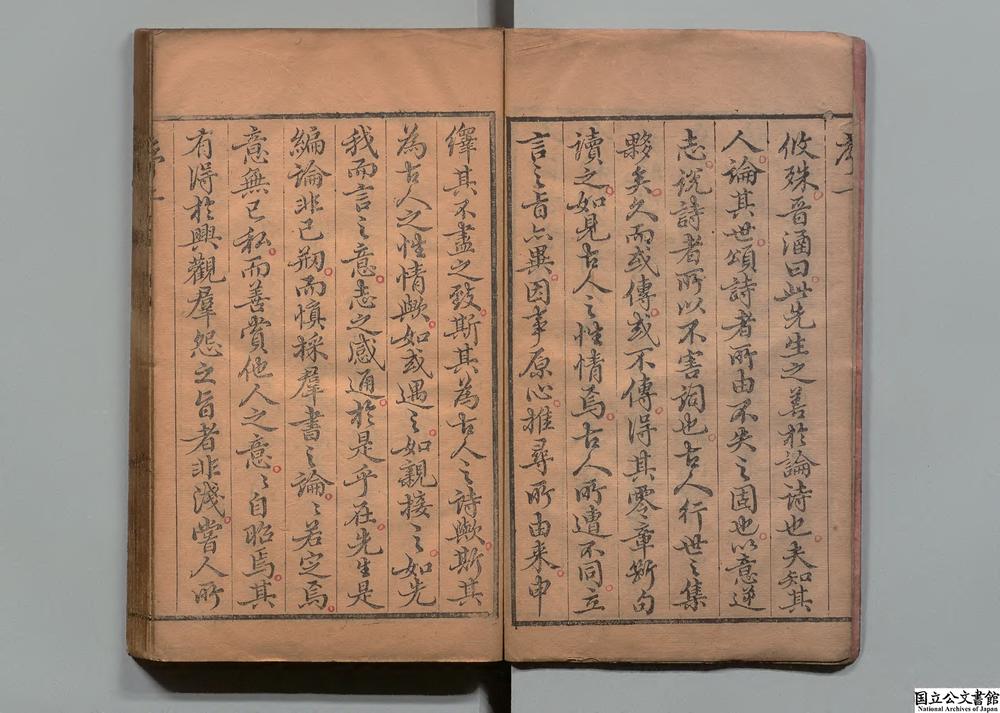 攸殊晉涵曰此先生之善於論诗也夫知其
人論其世頌詩者所由不失之固也以意逆
志說詩者所以不害詞也古人行世之集
夥矣久而或傳或不傳得其零章斷句
讀之如見古人之性情焉古人所遭不同立
言之旨亦異因事原心推尋所由来申
繹其不盡之致斯其為古人之詩歟斯其
為古人之性情歟如或遇之如親接之如先
我而言之意志之感通於是乎在先生是
編論非己剏而慎採羣書之論〻若定焉
意無已私而善賞他人之意〻自昭焉其
有得於興觀羣怨之旨者非淺嘗人所
国立公文書館
National Archives of Japan